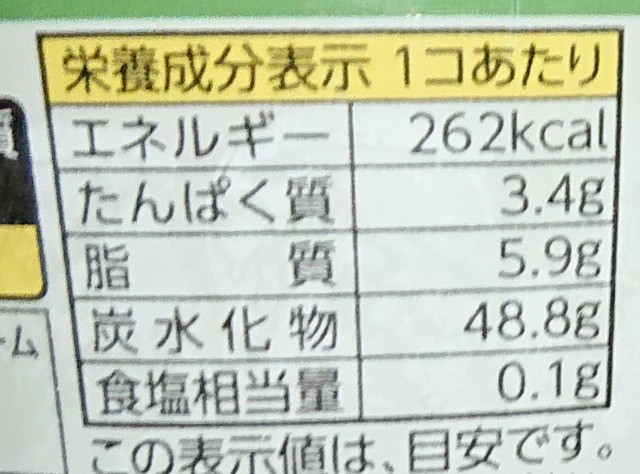 栄養成分表示 1コあたり
エネルギー 262kcal
たんぱく質 3.4g
脂質 5.9g
炭水化物 48.8g
食塩相当量 0.1g
この表示値は、目安です。
質
ーム